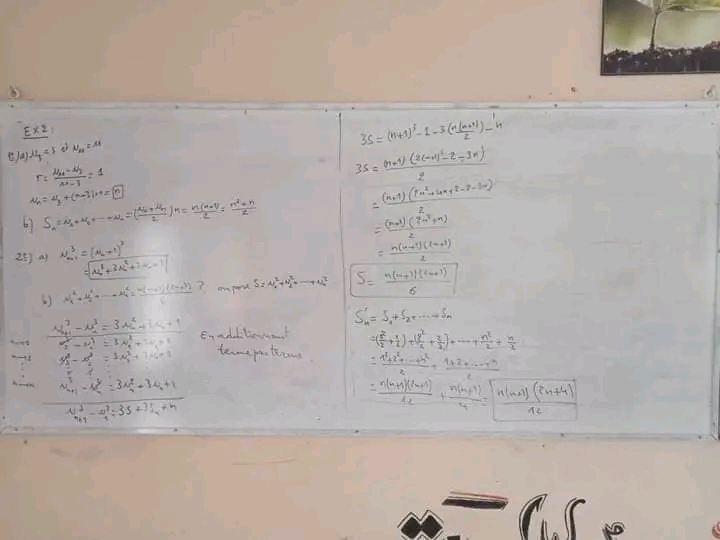 EX2:
1) a) u₃ = 3 et u₁₁ = 11
r = (u₁₁ - u₃)/(11 - 3) = 1
uₙ = u₃ + (n-3)×1 = n
b) Sₙ = u₁ + u₂ + ... + uₙ = ((u₁ + uₙ)/2) n = n(n+1)/2 = (n² + n)/2
2) a) u³ₙ₊₁ = (uₙ + 1)³
= uₙ³ + 3uₙ² + 3uₙ + 1
b) u₁² + u₂² + ... + uₙ² = n(n+1)(2n+1)/6 ? on pose S = u₁² + u₂² + ... + uₙ²
u³ₙ₊₁ - uₙ³ = 3uₙ² + 3uₙ + 1
En additionnant
terme par terme
u³ₙ₊₁ - uₙ³ = 3uₙ² + 3uₙ + 1
u³ₙ₊₁ - u₁³ = 3S + 3Sₙ + n
3S = (n+1)³ - 1 - 3(n(n+1)/2) - n
3S = (n+1)(2(n+1)² - 2 - 3n)/2
= (n+1)(2n² + 4n + 2 - 2 - 3n)/2
= (n+1)(2n² + n)/2
= n(n+1)(2n+1)/2
S = n(n+1)(2n+1)/6
S'ₙ = S₁ + S₂ + ... + Sₙ
= (1²/2 + 1/2) + (2²/2 + 2/2) + ... + n²/2 + n/2
= (1² + 2² + ... + n²)/2 + (1 + 2 + ... + n)/2
= n(n+1)(2n+1)/12 + n(n+1)/4 = n(n+1)(2n+4)/12